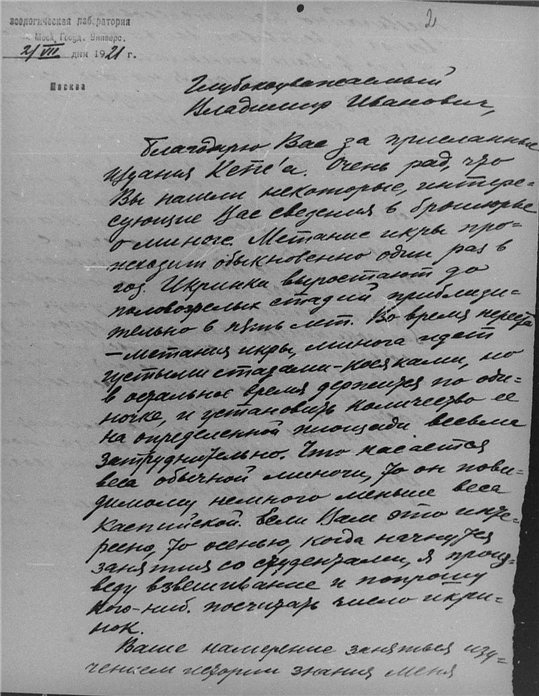 2
Зоологическая лаборатория
Моск. Госуд. Универс.
2/VII дня 1921 г.
Москва
Глубокоуважаемый
Владимир Иванович,
Благодарю Вас за присланные
издания Кепе'а. Очень рад, что
Вы нашли некоторые, интере-
сующие Вас сведения в брошюрке
о миноге. Метание икры про-
исходит обыкновенно один раз в
год. Икринки выростают до
половозрелых стадий приблизи-
тельно в пять лет. Во время нереста
–метания икры, минога идет
густыми стадами-косяками, но
в остальное время держится по оди-
ночке, и установить количество ее
на определенной площади весьма
затруднительно. Что касается
веса обычной миноги, то он пови-
димому немного меньше веса
Каспийской. Если Вам это инте-
ресно, то осенью, когда начнутся
занятия со студентами, я произ-
веду взвешивание и попрошу
кого-ниб. посчитать число икри-
нок.
Ваше намерение заняться изу-
чением истории знания меня